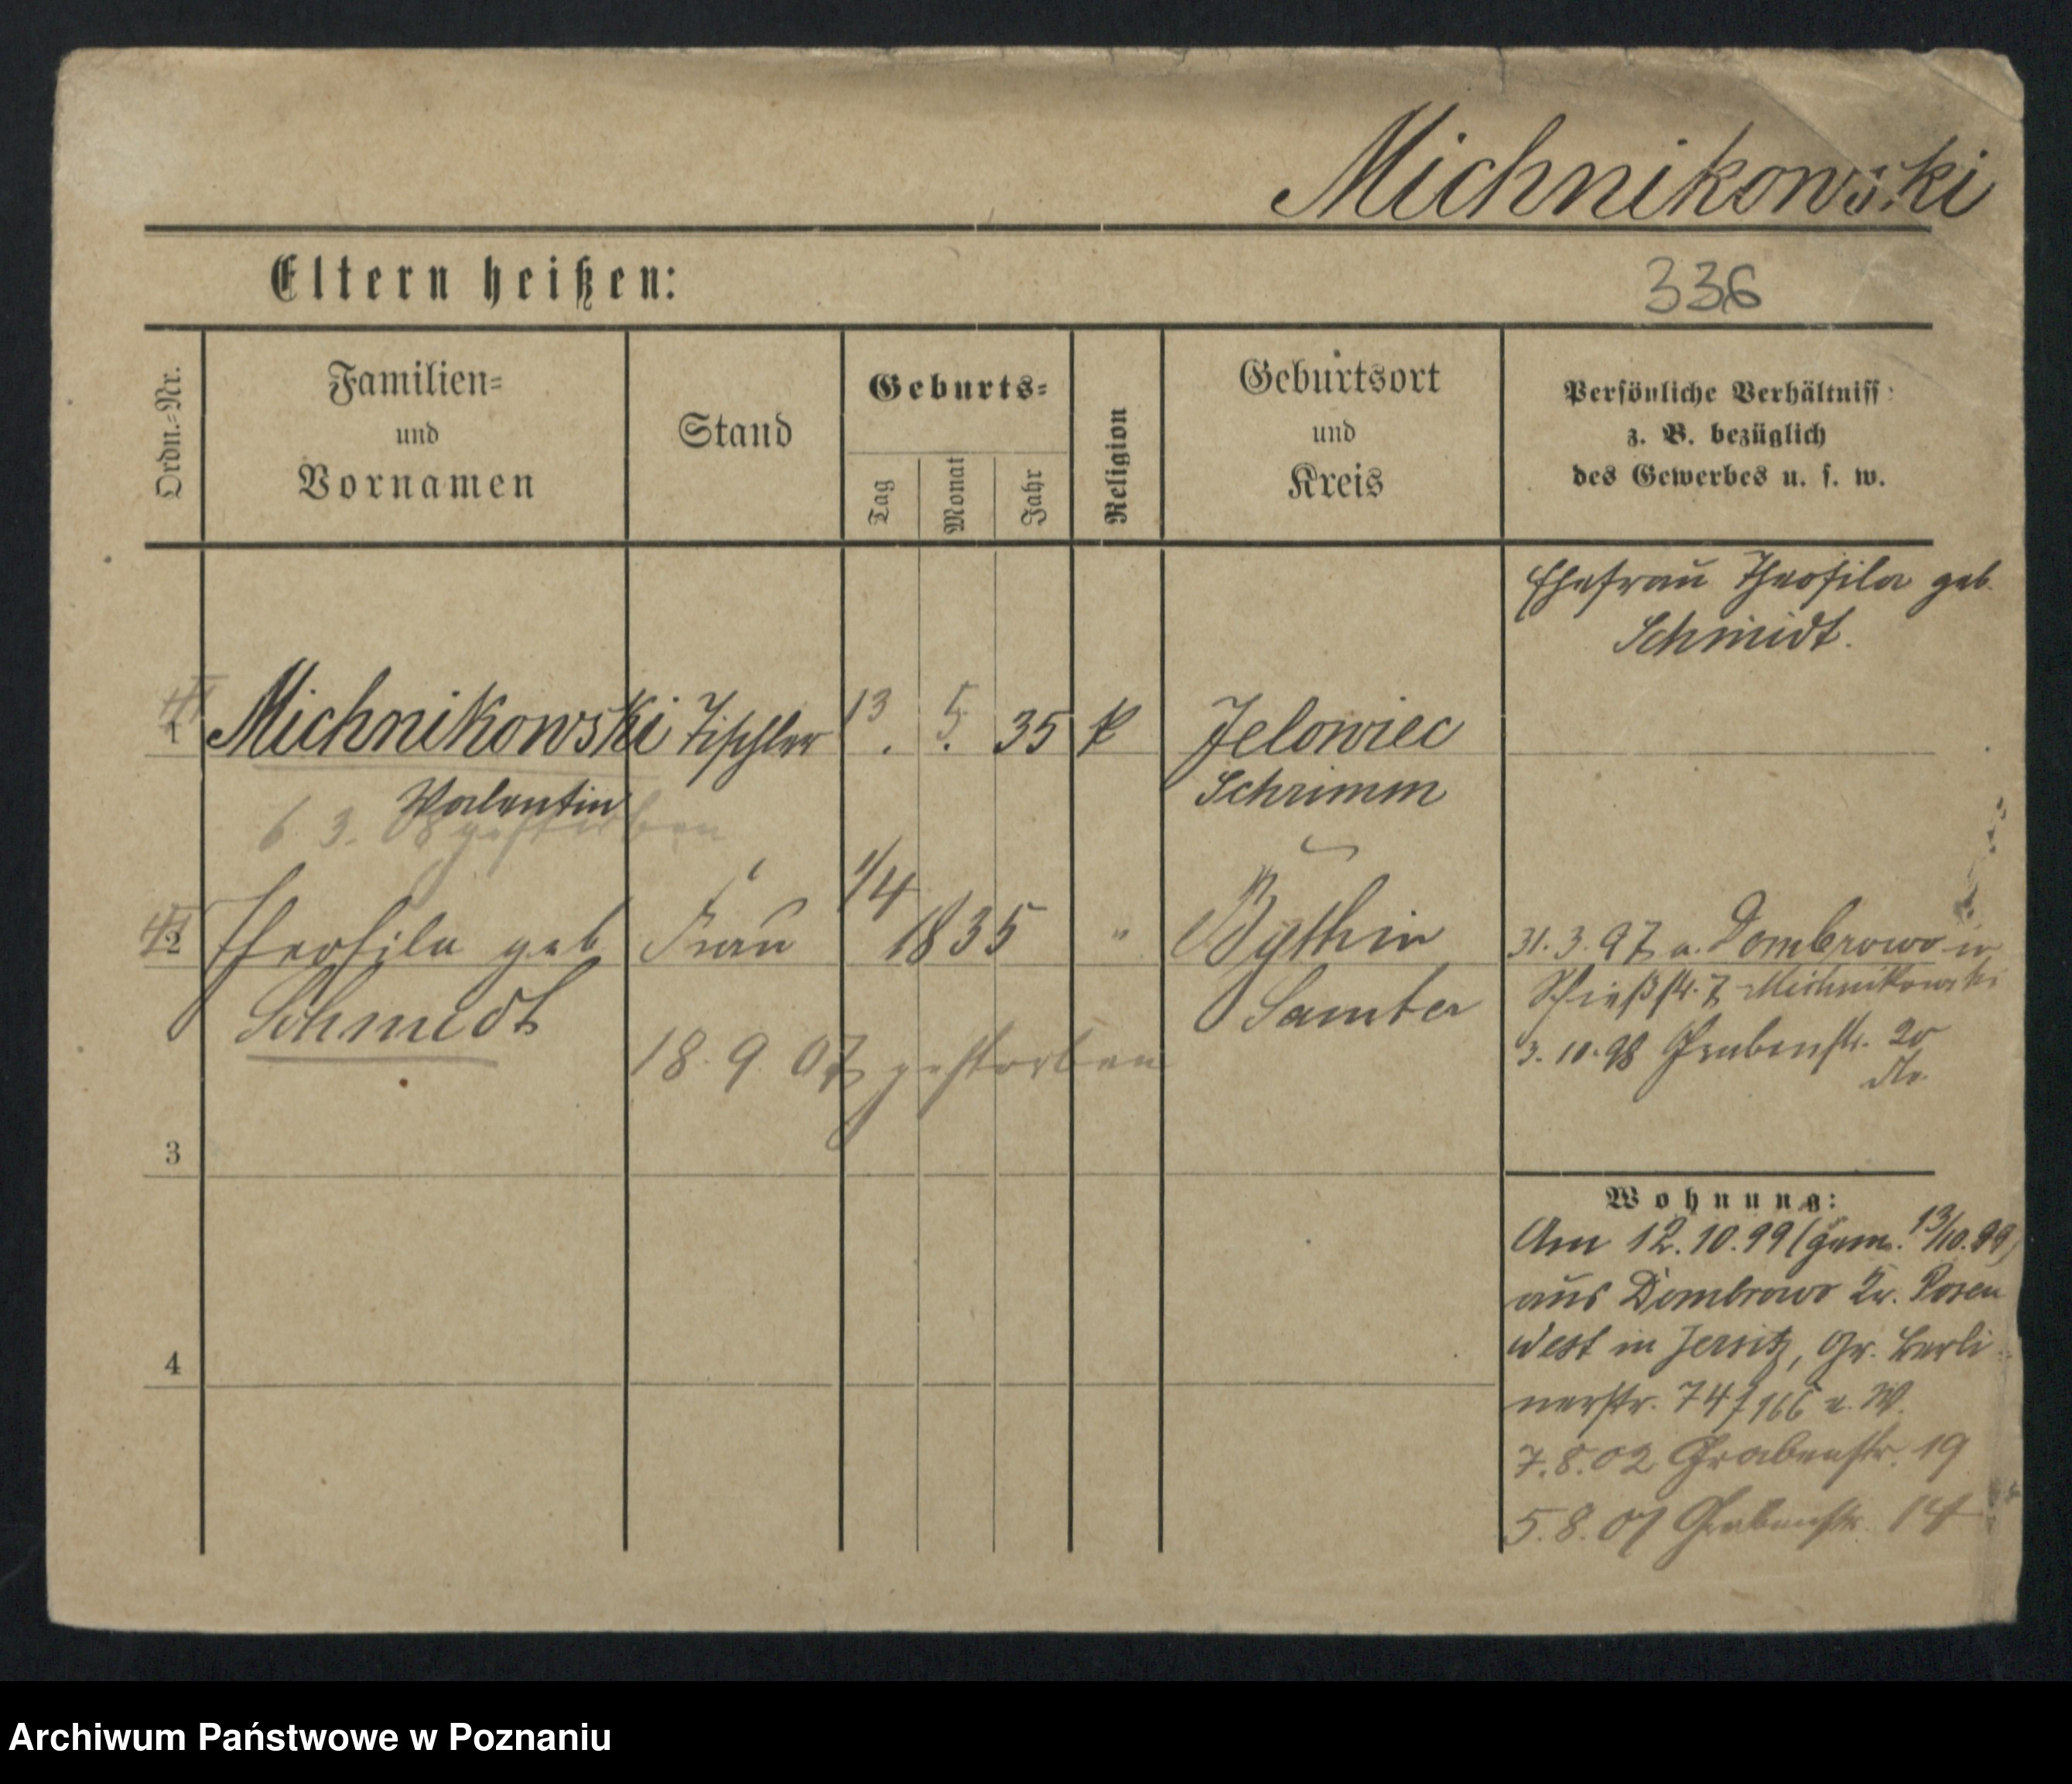 Michnikowski
Eltern heißen:
336
Ordn.-Nr.
Familien-
und
Vornamen
Stand
Geburts-
Tag
Monat
Jahr
Religion
Geburtsort
und
Kreis
Persönliche Verhältniss
z. B. bezüglich
des Gewerbes u. s. w.
Ehefrau Theofila geb.
Schmidt.
1 Michnikowski Tischler 13. 5. 35 k Jelowiec
Valentin Schrimm
6 3. gestorben
2 Theofila geb Frau 1/4 1835 " Bythin
Schmidt Samter
18. 9. 07 gestorben
31. 3. 97 a. Dombrowo in
Schießstr. 7 Michnikowski
3. 10. 98 Grabenstr. 20
3
4
Wohnung:
Am 12.10.99 (gem. 13/10.99)
aus Dombrowo Kr. Posen
West in Jersitz, Gr. Berli
nerstr. 74 / 166 W.
7.8.02 Grabenstr. 19
5.8.07 Grabenstr. 14
Archiwum Państwowe w Poznaniu